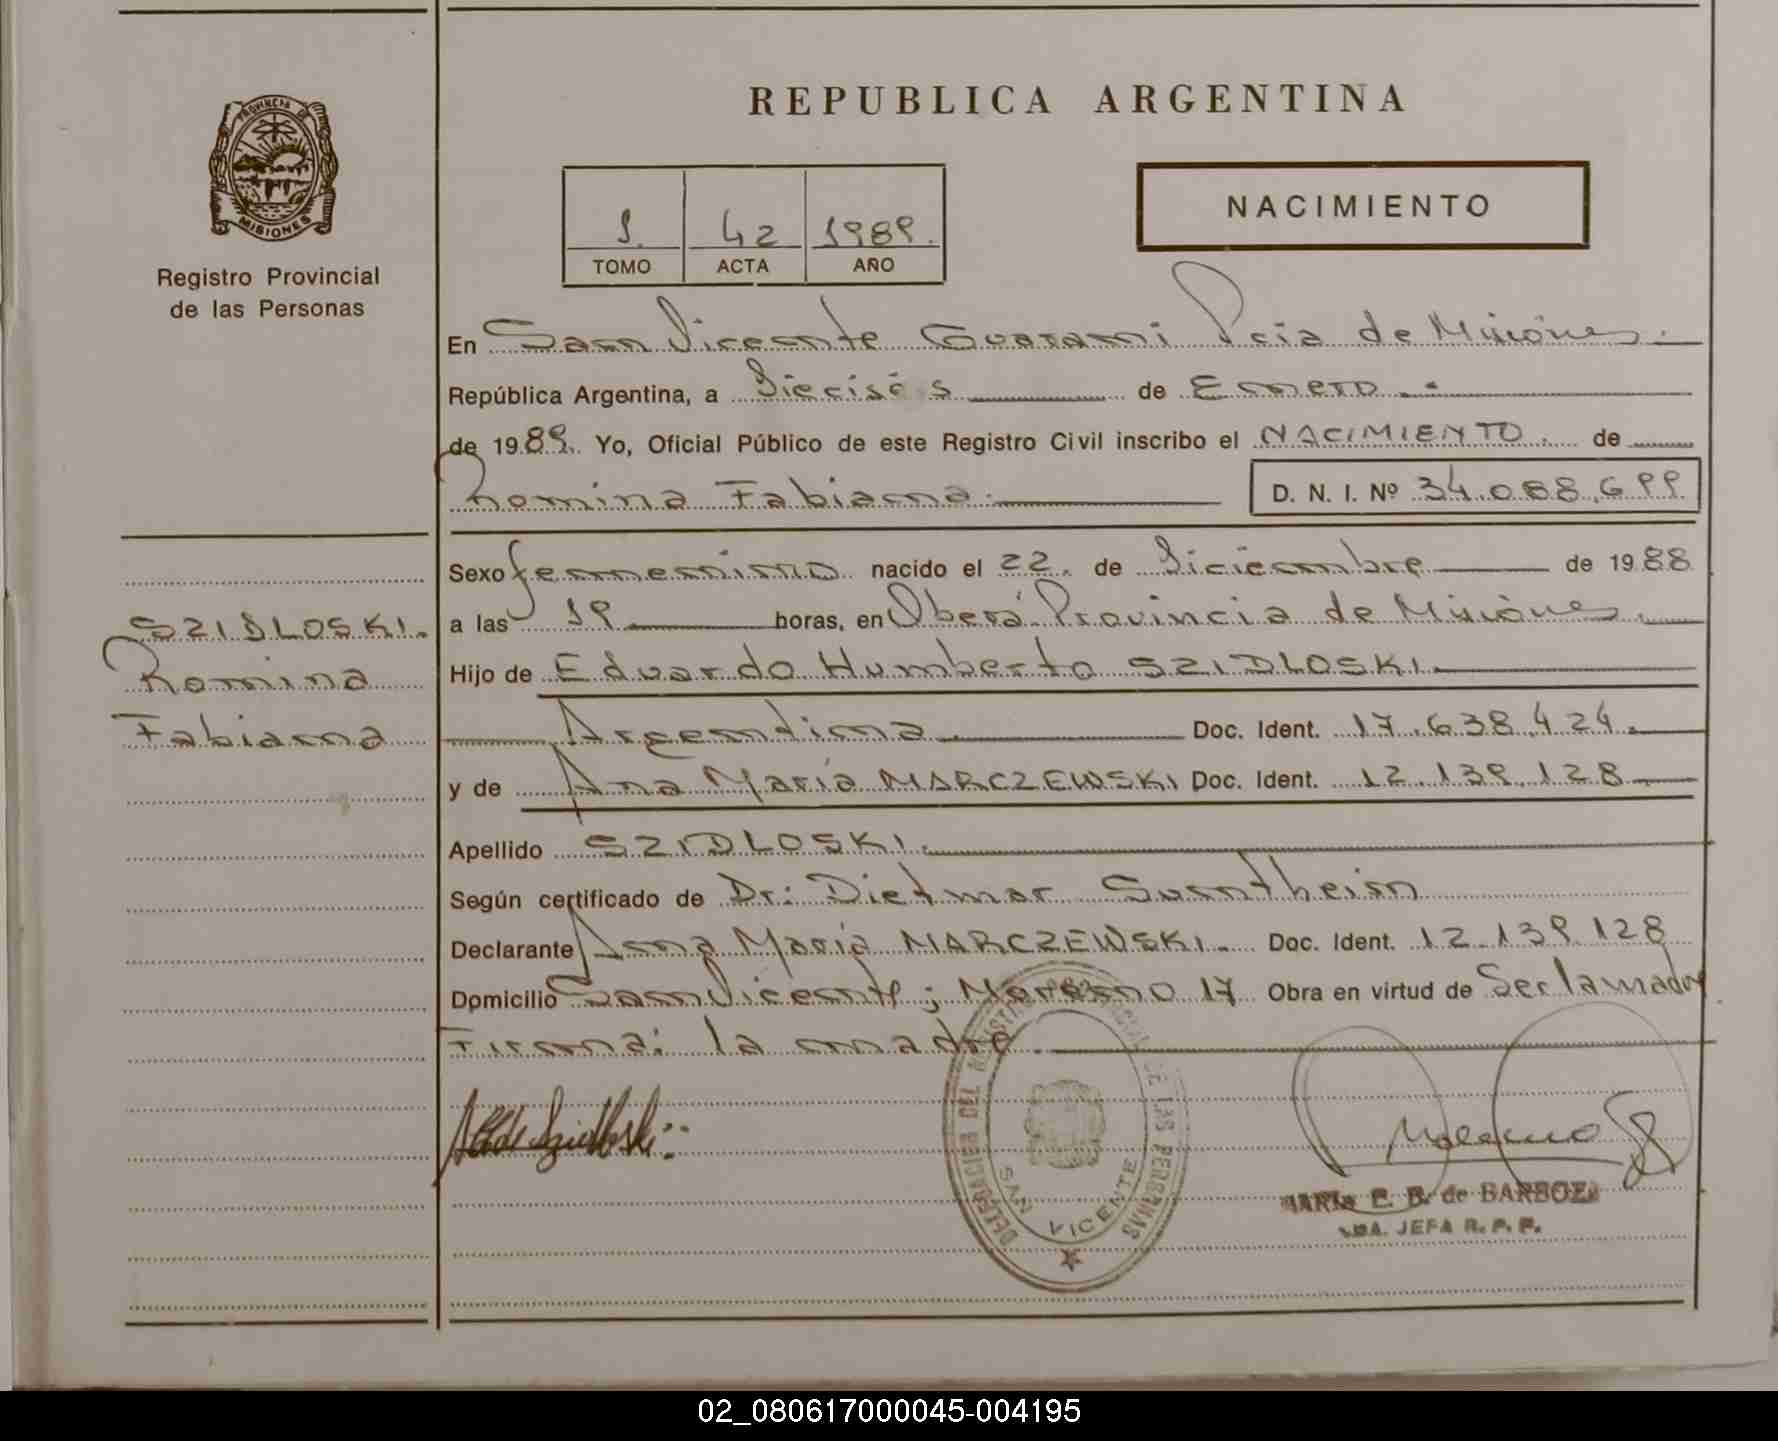 PROVINCIA DE
MISIONES
Registro Provincial
de las Personas
REPUBLICA ARGENTINA
1. 42 1989.
TOMO ACTA AÑO
NACIMIENTO
En San Vicente Guarani Pcia de Misiones.
República Argentina, a Dieciséis de Enero.
de 1989. Yo, Oficial Público de este Registro Civil inscribo el NACIMIENTO. de
Romina Fabiana. D. N. I. Nº 34.088.699
SZIDLOSKI.
Romina
Fabiana
Sexo femenino nacido el 22. de Diciembre de 1988
a las 19 horas, en Oberá Provincia de Misiones.
Hijo de Eduardo Humberto SZIDLOSKI.
Argentina. Doc. Ident. 17.638.424.
y de Ana María MARCZEWSKI Doc. Ident. 12.139.128
Apellido SZIDLOSKI.
Según certificado de Dr: Dietmar Suntheim
Declarante Ana María MARCZEWSKI. Doc. Ident. 12.139.128
Domicilio San Vicente; Moreno 17 Obra en virtud de Ser la madre
Firma: la madre.
SAN VICENTE
MARIA E. B. de BARBOZA
JEFA R. P. P.
02_080617000045-004195